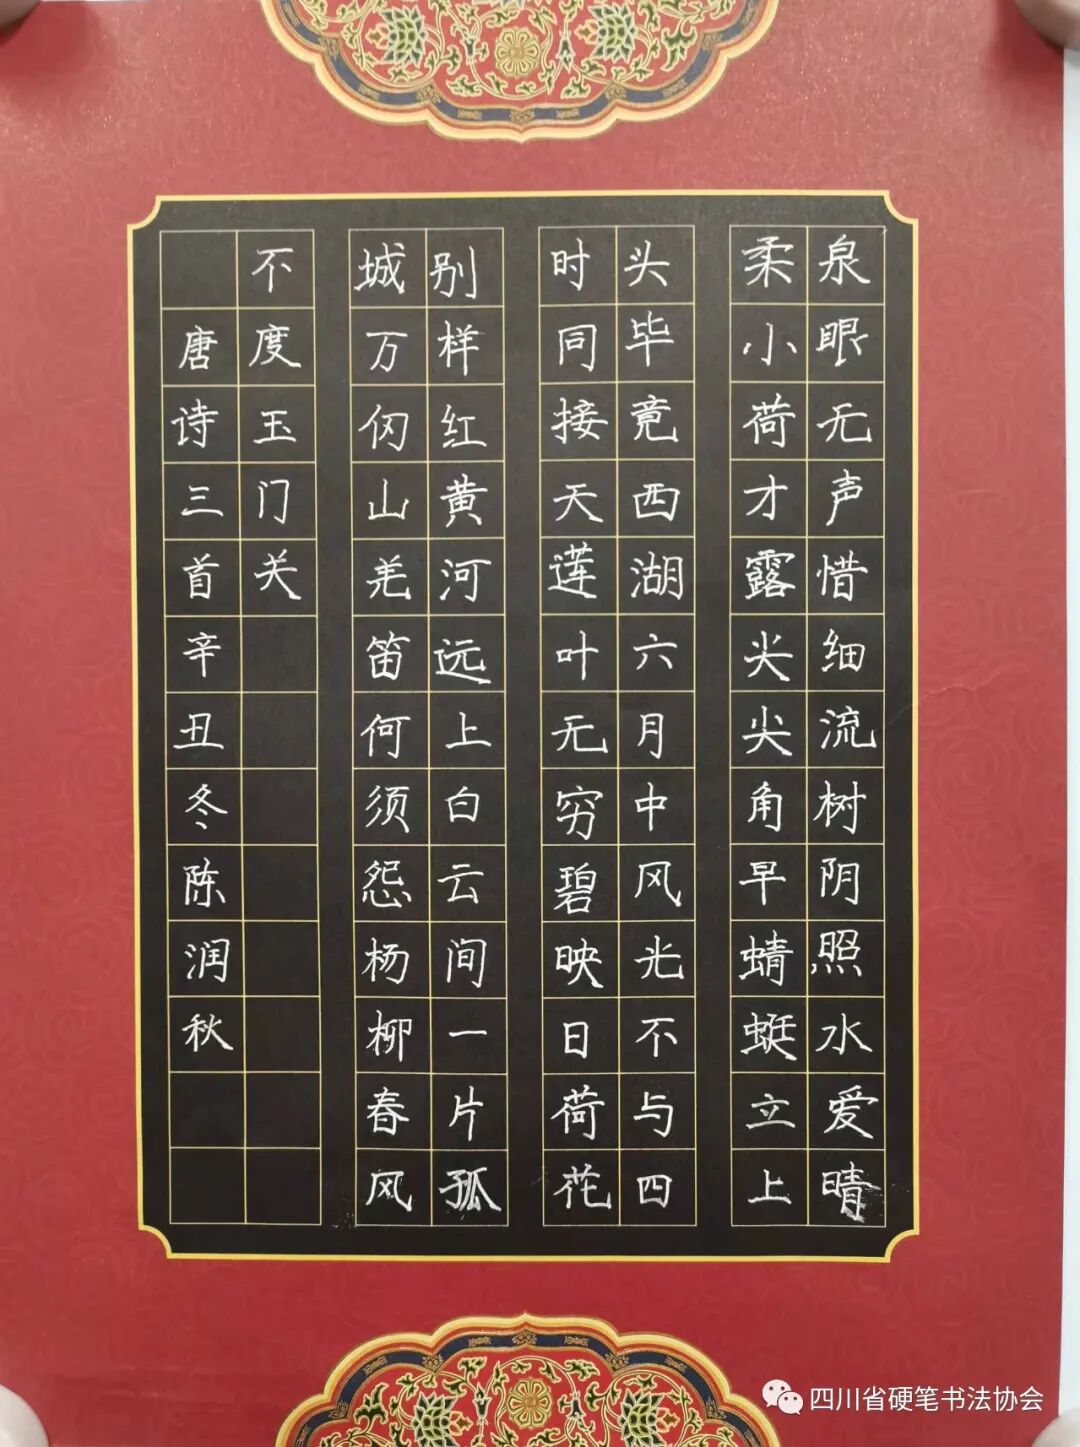 泉眼无声惜细流树阴照水爱晴
柔小荷才露尖尖角早蜻蜓立上
头毕竟西湖六月中风光不与四
时同接天莲叶无穷碧映日荷花
别样红黄河远上白云间一片孤
城万仞山羌笛何须怨杨柳春风
不度玉门关
唐诗三首辛丑冬陈润秋
四川省硬笔书法协会